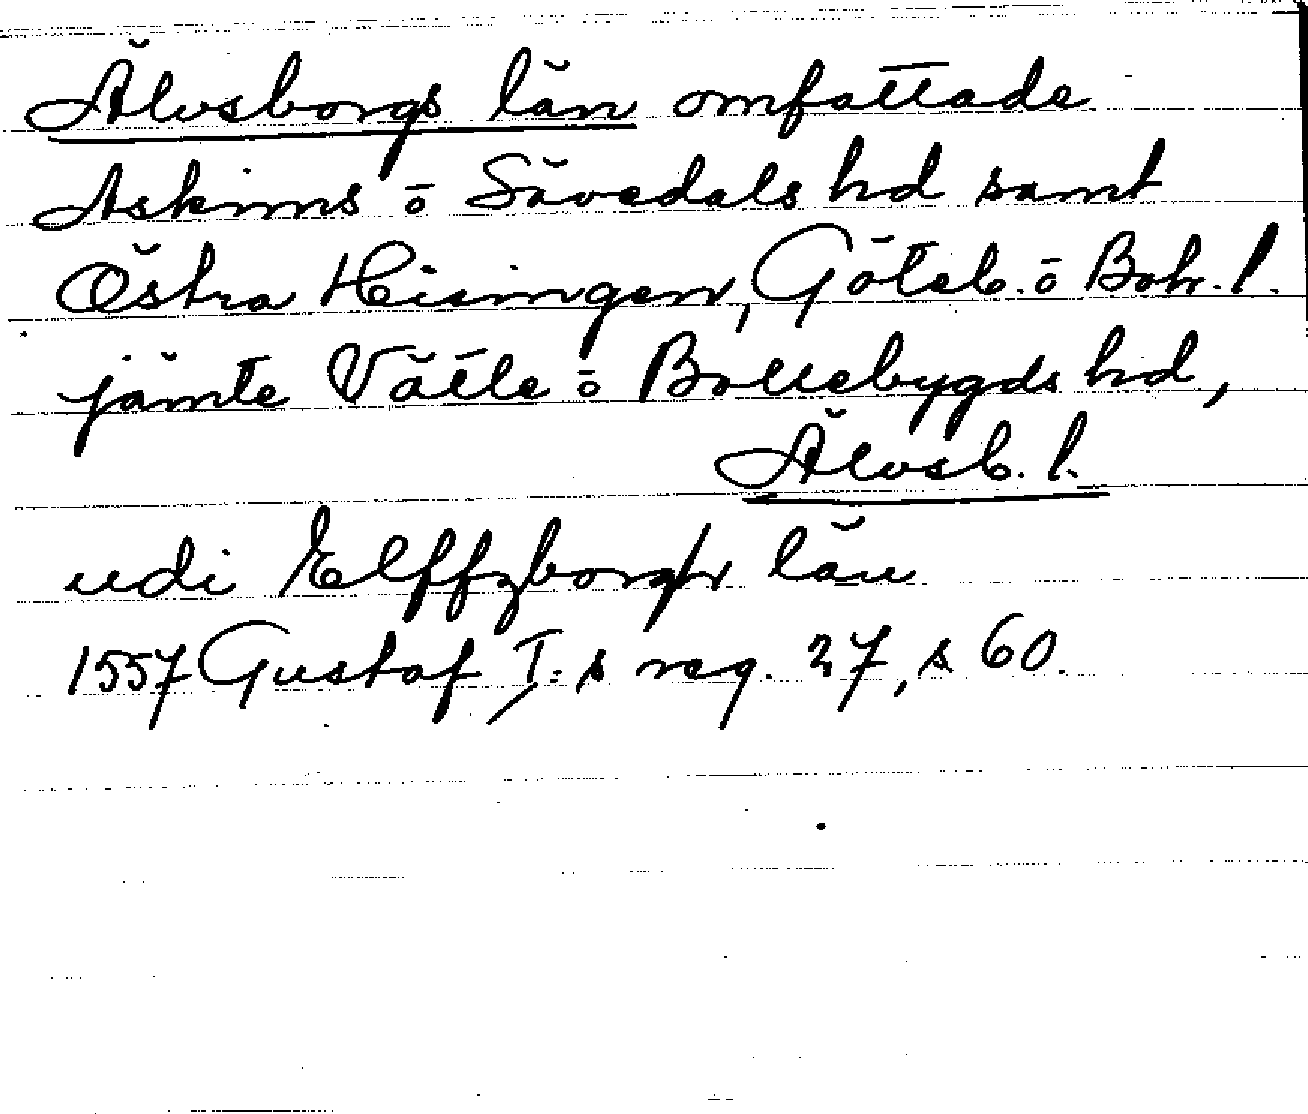 Älvsborgs län omfattade
Askims o Sävedals hd samt
Östra Hisingen, Göteb. o Boh. l.
jämte Vätle o Bollebygds hd,
Älvsb. l.
udi Elffzborgx län
1557 Gustaf I:s reg. 27, s 60.